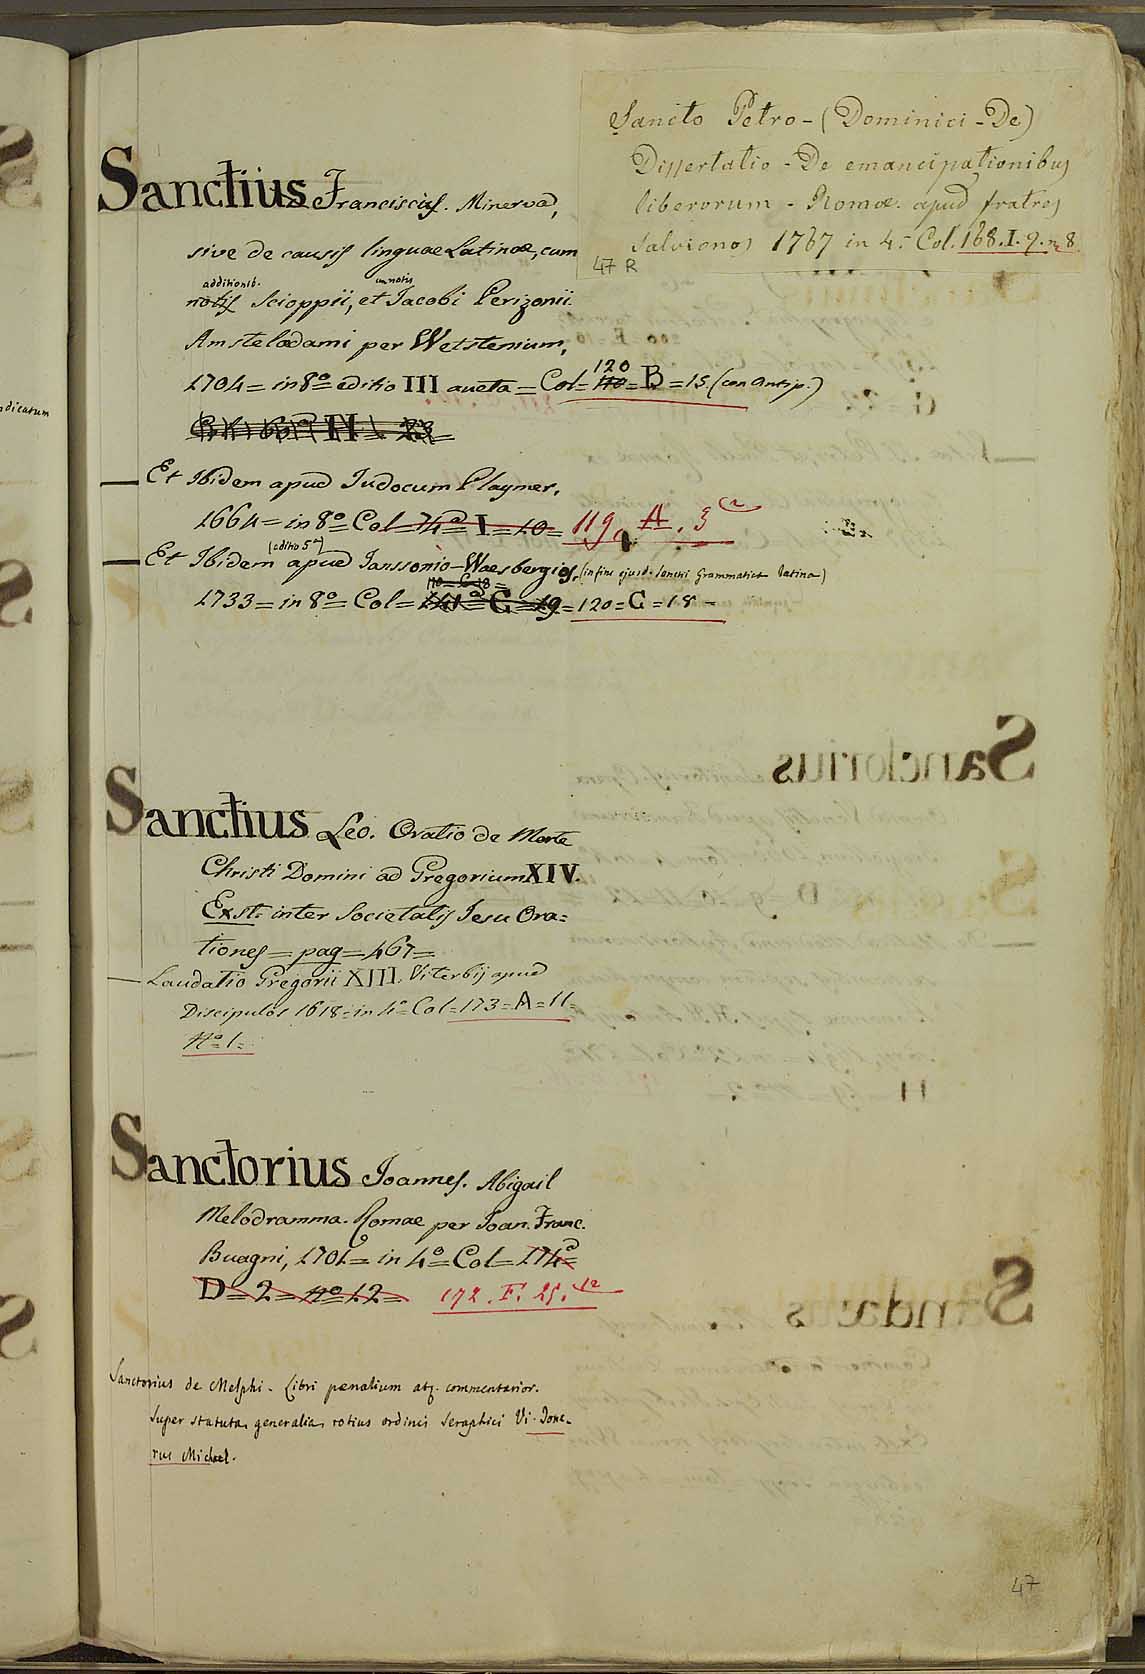 Sancto Petro - (Dominici - De)
Dissertatio - De emancipationibus
liberorum - Romæ. apud fratres
Salvionos 1767 in 4.° Col. 168. I. 9. n. 8.
47 R
Sanctius Franciscus. Minerva,
sive de causis linguae Latinæ, cum
additionib. cum notis
notis Scioppii, et Jacobi Perizonii.
Amstelodami per Wetstenium,
1704 = in 8° editio III aucta = Col = 120 = B = 15. (con antip.)
Et Ibidem apud Judocum Playmer.
1664 = in 8° = Col 74° = I = 10 = 119. A. 3
(editio 5ª)
Et Ibidem apud Janssonio-Waesbergios. (in fine ejusd. Sanctii Grammatica Latina)
110 = C = 18 =
1733 = in 8° = Col = 141° = G = 19 = 120 = C = 18 =
Sanctius Leo. Oratio de Morte
Christi Domini ad Gregorium XIV.
Exst. inter Societatis Jesu Ora=
tiones = pag = 467 =
Laudatio Gregorii XIII. Viterbij apud
Discipulos 1618 = in 4° Col = 173 = A = 11 =
N° 1.
Sanctorius Joannes. Abigail
Melodramma. Romae per Joan. Franc.
Buagni, 1701 = in 4° = Col = 174° =
D = 2 = N° 12 = 172. F. 25. 12
Sanctorius de Melphi - Libri penalium atq. commentarior.
super statuta generalia totius ordinis Seraphici Vi. Jone-
rus Michael.
47